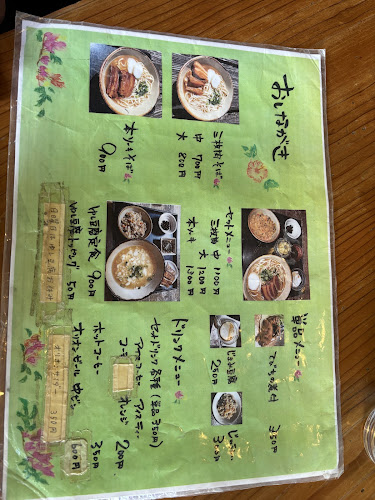 おしながき
三枚肉そば
中 700円
大 800円
本ソーキそば
900円
セットメニュー
三枚肉 中 1100円
大 1200円
本ソーキ 1300円
ゆし豆腐定食 900円
ゆし豆腐トッピング 50円
単品メニュー
てびち煮付 350円
250円
300円
ドリンクメニュー
セットドリンク各種 (単品 350円)
アイスコーヒー アイスティー
コーラ オレンジ 200円
ホットコーヒー 350円
オリオンビール 中ビン 600円
350円